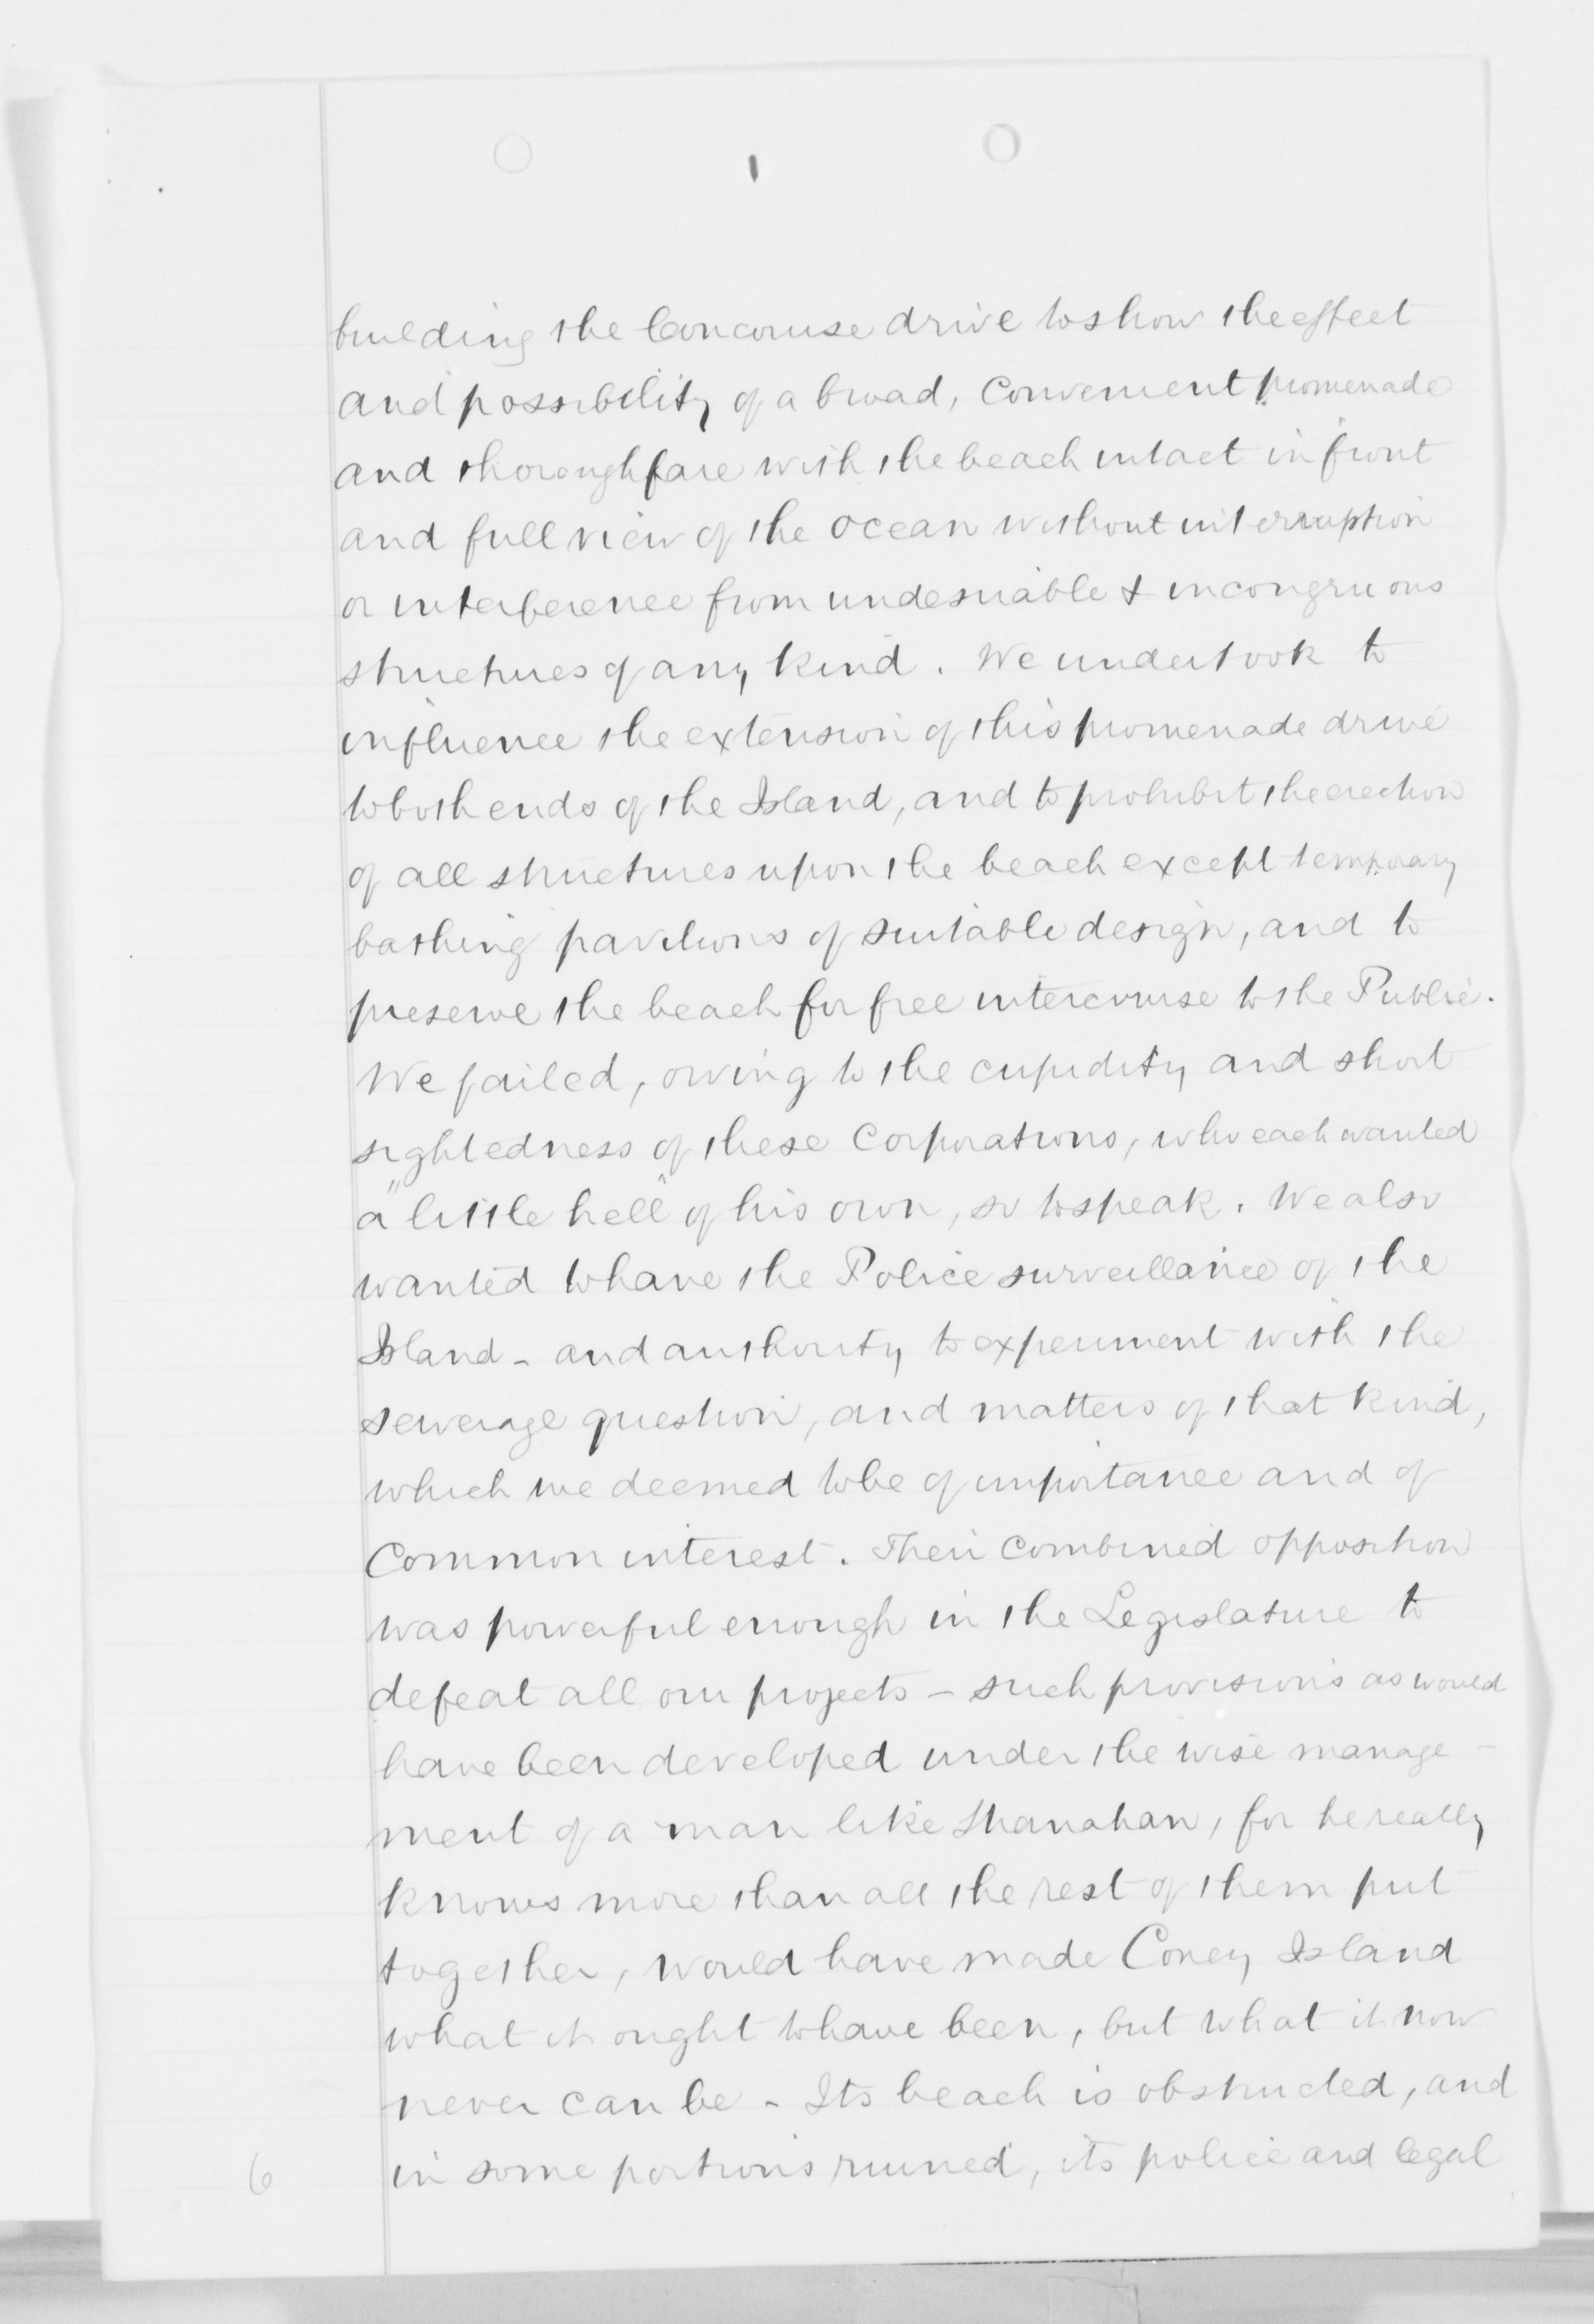 building the Concourse drive to show the effect
and possibility of a broad, convenient promenade
and thoroughfare with the beach intact in front
and full view of the ocean without interruption
or interference from undesirable & incongruous
structures of any kind. We undertook to
influence the extension of this promenade drive
to both ends of the Island, and to prohibit the erection
of all structures upon the beach except temporary
bathing pavilions of suitable design, and to
preserve the beach for free intercourse to the Public.
We failed, owing to the cupidity and short
sightedness of these Corporations, who each wanted
a "little hell" of his own, so to speak. We also
wanted to have the Police surveillance of the
Island - and authority to experiment with the
sewerage question, and matters of that kind,
which we deemed to be of importance and of
Common interest. Their combined opposition
was powerful enough in the Legislature to
defeat all our projects - such provisions as would
have been developed under the wise manage-
ment of a man like Shanahan, for he really
knows more than all the rest of them put
together, would have made Coney Island
what it ought to have been, but what it now
never can be - Its beach is obstructed, and
in some portions ruined, its police and legal
6